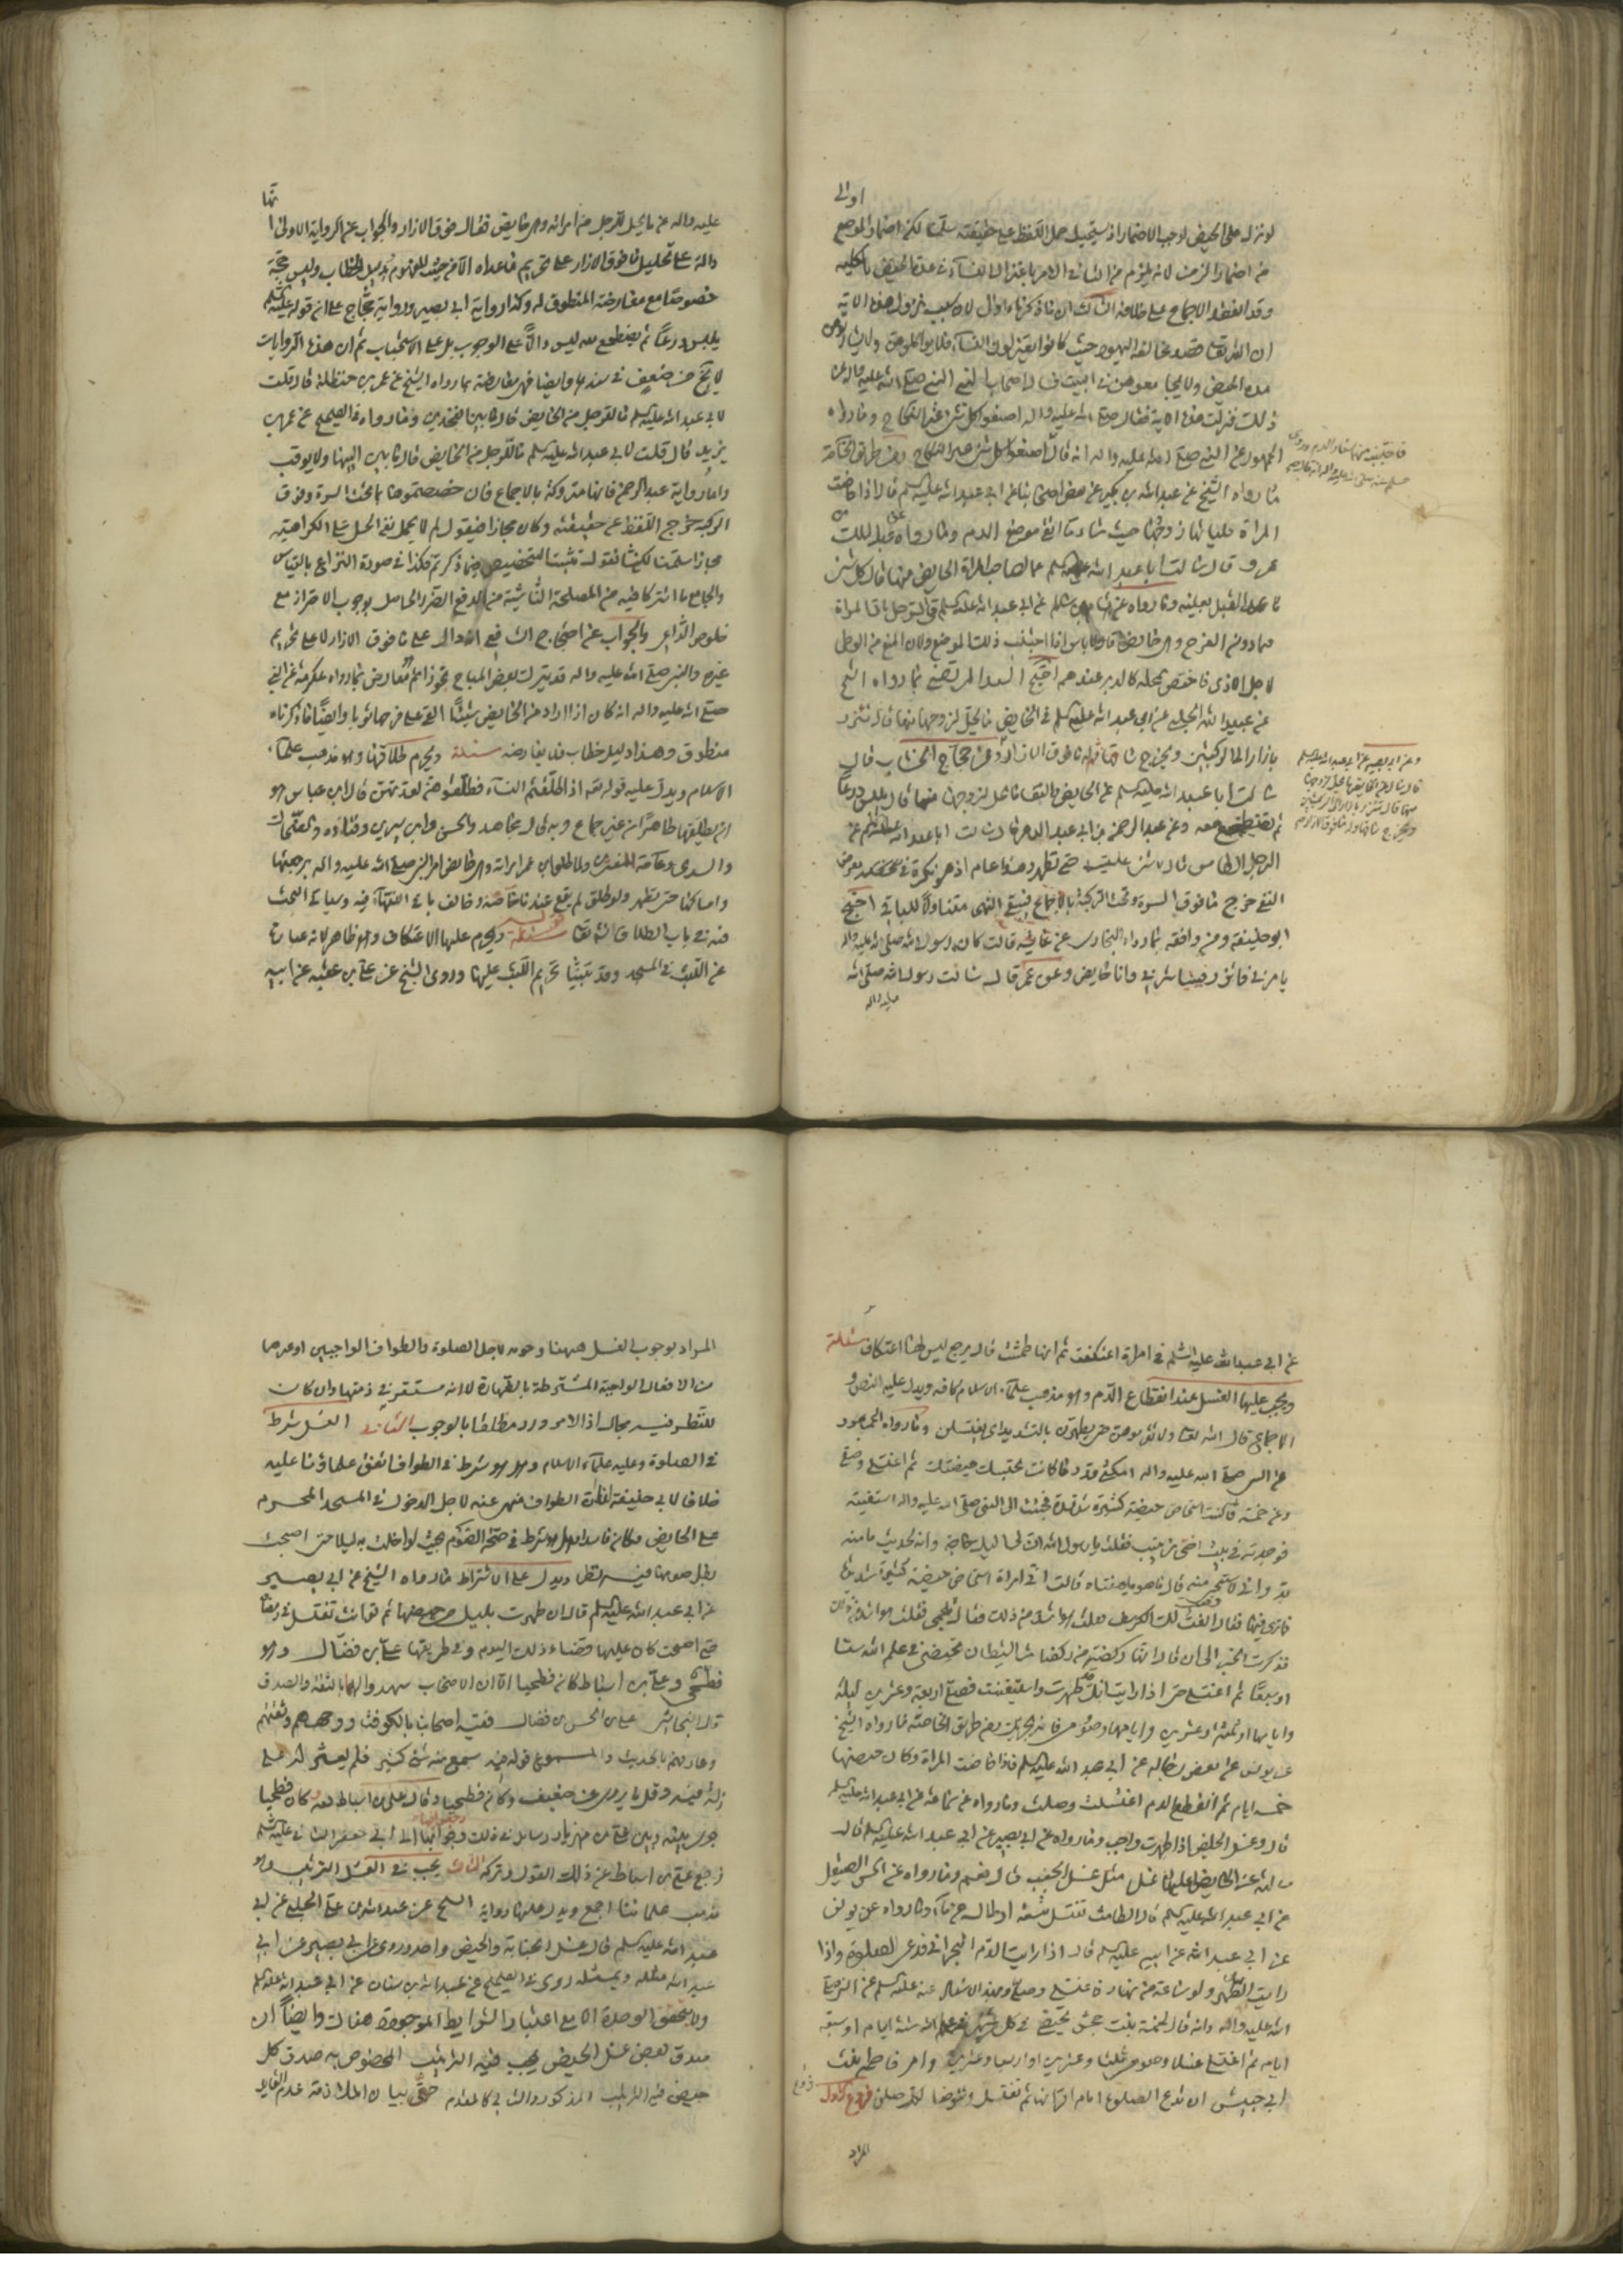 لو نزل على الحيض لوجب الاضمار اذ يستحيل حمل اللفظ على حقيقته سلمنا لكن اضمار الموضع
من اضمار الزمن لانه يلزم من الثانى الامر باعتزال النساء فى مدة الحيض بالكلية
وقد انعقد الاجماع على خلافه الثالث ان ما ذكرناه اولى لان سبب نزول هذه الاية
ان الله تعالى قصد مخالفة اليهود حيث كانوا يعتزلون النساء فلا يواكلوهن ولا يشاربوهن
مدة الحيض ولا يجامعوهن فى البيت فسال اصحاب النبى النبى صلى الله عليه واله عن
ذلك فنزلت هذه الاية فقال صلى الله عليه واله اصنعوا كل شئ غير النكاح وما رواه
الجمهور عن النبى صلى الله عليه واله انه قال اصنعوا كل شئ غير النكاح ومن طريق الخاصة
ما رواه الشيخ عن عبدالله بن بكير عن بعض اصحابنا عن ابى عبدالله عليه السلم قال اذا حاضت
المراة فلياتها زوجها حيث شاء ما اتقى موضع الدم وما رواه عن عبد الملك بن
عمرو قال سالت ابا عبد الله عليه السلم ما لصاحب المراة الحايض منها قال كل شئ
ما عدا القبل بعينه وما رواه عن هشام بن سالم عن ابى عبد الله عليه السلم فى الرجل ياتى المراة
فيما دون الفرج وهى حايض قال لا باس اذا اجتنب ذلك الموضع ولان المنع من الوطى
لاجل الاذى فاختص بمحله كالدبر عندهم احتج السيد المرتضى بما رواه الشيخ
عن عبيد الله الحلبى عن ابى عبد الله عليه السلم فى الحايض ما يحل لزوجها منها قال تتزر
بازار الى الركبتين وتخرج ساقيها وله ما فوق الازار وعن حجاج الخشاب قال
سالت ابا عبد الله عليه السلم عن الحايض والنفساء ما يحل لزوجها منها قال تلبس درعا
ثم تضطجع معه وعن عبد الرحمن بن ابى عبد الله قال سالت ابا عبد الله عليه السلم عن
الرجل ما للطامث قال لا شئ عليه حتى تطهر وهذا عام اذ هو نكرة فى معرض
النفى خرج ما فوق السرة وتحت الركبة بالاجماع فيبقى النهى متناولا للباقى احتج
ابو حنيفة ومن وافقه بما رواه البخارى عن عايشة قالت كان رسول الله صلى الله عليه واله
يامرنى فاتزر فيباشرنى وانا حايض وعن عمر قال سالت رسول الله صلى الله
عليه واله
وعن ابى بصير عن ابى عبد الله عليه السلم
قال سالته عن الحايض ما يحل لزوجها
منها قال تتزر بازار الى الركبتين
وتخرج ساقيها وله ما فوق الازار
عليه واله عن ما يحل للرجل من امراته وهى حايض فقال فوق الازار والجواب عن الرواية الاولى
دالة على تحليل ما فوق الازار على تحريم ما عداه الا من حيث المفهوم بدليل الخطاب وليس بحجة
خصوصا مع معارضة المنطوق له وكذا رواية ابى بصير ورواية حجاج على ان قوله عليه السلم
يلبس درعا ثم يضطجع معه ليس دالا على الوجوب بل على الاستحباب ثم ان هذه الروايات
لا تخ من ضعف فى سندها وايضا فهى معارضة بما رواه الشيخ عن عمر بن حنظلة قال قلت
لابى عبد الله عليه السلم ما للرجل من الحايض قال ما بين الفخذين وما رواه فى الصحيح عن عمر بن
يزيد قال قلت لابى عبد الله عليه السلم ما للرجل من الحايض قال ما بين اليتيها ولا يوقب
واما رواية عبد الرحمن فانها متروكة بالاجماع فان خصصتموها بما تحت السرة وفوق
الركبة خرج اللفظ عن حقيقته وكان مجازا فنقول لم لا يحمل نفى الحل على الكراهية
مجازا سلمنا لكنا نقول ثبت التخصيص فيما ذكرتم فكذا فى صورة النزاع بالقياس
والجامع ما اشتركا فيه من المصلحة الناشئة من دفع الضرر الحاصل بوجوب الاحتراز مع
خلوص الداعى والجواب عن احتجاج الشافعى انه دال على ما فوق الازار لا على تحريم
غيره والنبى صلى الله عليه واله قد يترك بعض المباح تحوزا ثم تعارض بما رواه عكرمة عن النبى
صلى الله عليه واله انه كان اذا اراد من الحايض شيئا القى على فرجها ثوبا وايضا ما ذكرناه
منطوق وهذا دليل خطاب فلا يعارضه مسئلة ويحرم طلاقها وهو مذهب علماء
الاسلام ويدل عليه قوله تعالى اذا طلقتم النساء فطلقوهن لعدتهن قال ابن عباس هو
ان يطلقها طاهرا من غير جماع وبه قال مجاهد والحسن وابن سيرين وقتادة والضحاك
والسدى وعامة المفسرين ولما طلق ابن عمر امراته وهى حايض امر النبى صلى الله عليه واله برجعتها
وامساكها حتى تطهر ولو طلق لم يقع عند خاصة وخالف باقى الفقهاء فيه وسياتى البحث
فيه فى باب الطلاق انشاء الله تعالى مسئلة ويحرم عليها الاعتكاف وهو ظاهر لانه عبارة
عن اللبث فى المسجد وقد بينا تحريم اللبث عليها وروى الشيخ عن على بن عقبة عن ابيه
عن ابى عبد الله عليه السلم فى امراة اعتكفت ثم انها طمثت قال يرجع ليس لها اعتكاف مسئلة
ويجب عليها الغسل عند انقطاع الدم وهو مذهب علماء الاسلام كافة ويدل عليه النص و
الاجماع قال الله تعالى ولا تقربوهن حتى يطهرن بالتشديد اى يغتسلن وما رواه الجمهور
عن النبى صلى الله عليه واله امكثى قدر ما كانت تحبسك حيضتك ثم اغتسلى وصلى
وعن حمنة قالت كنت استحاض حيضة كثيرة شديدة فجئت الى النبى صلى الله عليه واله استفتيه
فوجدته فى بيت اختى زينب فقلت يا رسول الله ان لى اليك حاجة وانه لحديث ما منه
بد وانى لاستحيى منه قال ما هو يا هنتاه قالت انى امراة استحاض حيضة كثيرة شديدة
فما ترى فيها فقال انعت لك الكرسف فقلت هو اشد من ذلك فقال تلجمى فقلت هو اشد من ذلك
فذكرت الخبر الى ان قال انها ركضة من ركضات الشيطان تحيضى فى علم الله ستا
او سبعا ثم اغتسلى حتى اذا رايت انك قد طهرت واستنقيت فصلى اربعة وعشرين ليلة
وايامها او ثلثة وعشرين وايامها وصومى فانه يجزيك ومن طريق الخاصة ما رواه الشيخ
عن يونس عن بعض رجاله عن ابى عبد الله عليه السلم فاذا حاضت المراة وكان حيضها
خمسة ايام ثم انقطع الدم اغتسلت وصلت وما رواه عن سماعة عن ابى عبد الله عليه السلم
قال وغسل الحايض اذا طهرت واجب وما رواه عن ابى بصير عن ابى عبد الله عليه السلم قال
سالته عن الحايض اعليها غسل مثل غسل الجنب قال نعم وما رواه عن الحسن الصيقل
عن ابى عبد الله عليه السلم قال الطامث تغتسل بتسعة ارطال من ماء وما رواه عن يونس
عن ابى عبد الله عن ابيه عليه السلم قال اذا رايت الدم البحرانى فدعى الصلوة واذا
رايت الطهر ولو ساعة من نهار فاغتسلى وصلى وهذا الاسناد عنه عليه السلم عن النبى صلى
الله عليه واله وانه قال لحمنة بنت جحش تحيضى فى كل شهر فى علم الله ستة ايام او سبعة
ايام ثم اغتسلى غسلا وصومى ثلثا وعشرين او اربعا وعشرين وامر فاطمة بنت
ابى حبيش ان تدع الصلوة ايام اقرائها ثم تغتسل وتتوضا لكل صلوة فروع الاول
المراد
المراد بوجوب الغسل ههنا وجوبه لاجل الصلوة والطواف الواجبين او غيرهما
من الافعال الواجبة المشترطة بالطهارة لا انه مستقر فى ذمتها وان كان
للنظر فيه مجال اذ الامر ورد مطلقا بالوجوب الثانى الغسل شرط
فى الصلوة وعليه علماء الاسلام وهل هو شرط فى الطواف اتفق علماؤنا عليه
خلافا لابى حنيفة لنا ان الطواف منهى عنه لاجل الدخول فى المسجد المحرم
على الحايض فكان فاسدا وهل هو شرط فى صحة الصوم بحيث لو اخلت به ليلا حتى اصبحت
بطل صومها فيه نظر ويدل على الاشتراط ما رواه الشيخ عن ابى بصير
عن ابى عبد الله عليه السلم قال ان طهرت بليل من حيضها ثم توانت تغتسل فى رمضان
حتى اصبحت كان عليها قضاء ذلك اليوم وفى طريقها على بن فضال وهو
فطحى وعلى بن اسباط كان فطحيا الا ان الاصحاب شهدوا لهما بالثقة والصدق
قال النجاشى على بن الحسن بن فضال فقيه اصحابنا بالكوفة ووجههم وثقتهم
وعارفهم بالحديث والمسموع قوله فيه سمع منه شئ كثير فلم يعثر له على
زلة فيه وقل ما يروى عن ضعيف وكان فطحيا وقال على بن اسباط ثقة كان فطحيا
جرى بينه وبين على بن مهزيار رسايل فى ذلك رجعوا فيها الى ابى جعفر الثانى عليه السلم
فرجع على بن اسباط عن ذلك القول وتركه الثالث يجب فى الغسل الترتيب وهو
مذهب علمائنا اجمع ويدل عليه رواية الشيخ عن عبيد الله بن على الحلبى عن ابى
عبد الله عليه السلم قال غسل الجنابة والحيض واحد وروى عن ابى بصير عن ابى
عبد الله مثله وبمثله روى فى الصحيح عن عبد الله بن سنان عن ابى عبد الله عليه السلم
ولا تتحقق الوحدة الا مع اعتبار الشرايط الموجودة هناك وايضا ان
صدق بعض غسل الحيض يجب فيه الترتيب المخصوص به صدق كل
حيض فيه الترتيب المذكور والتالى كالمقدم حق بيان الملازمة عدم القايل